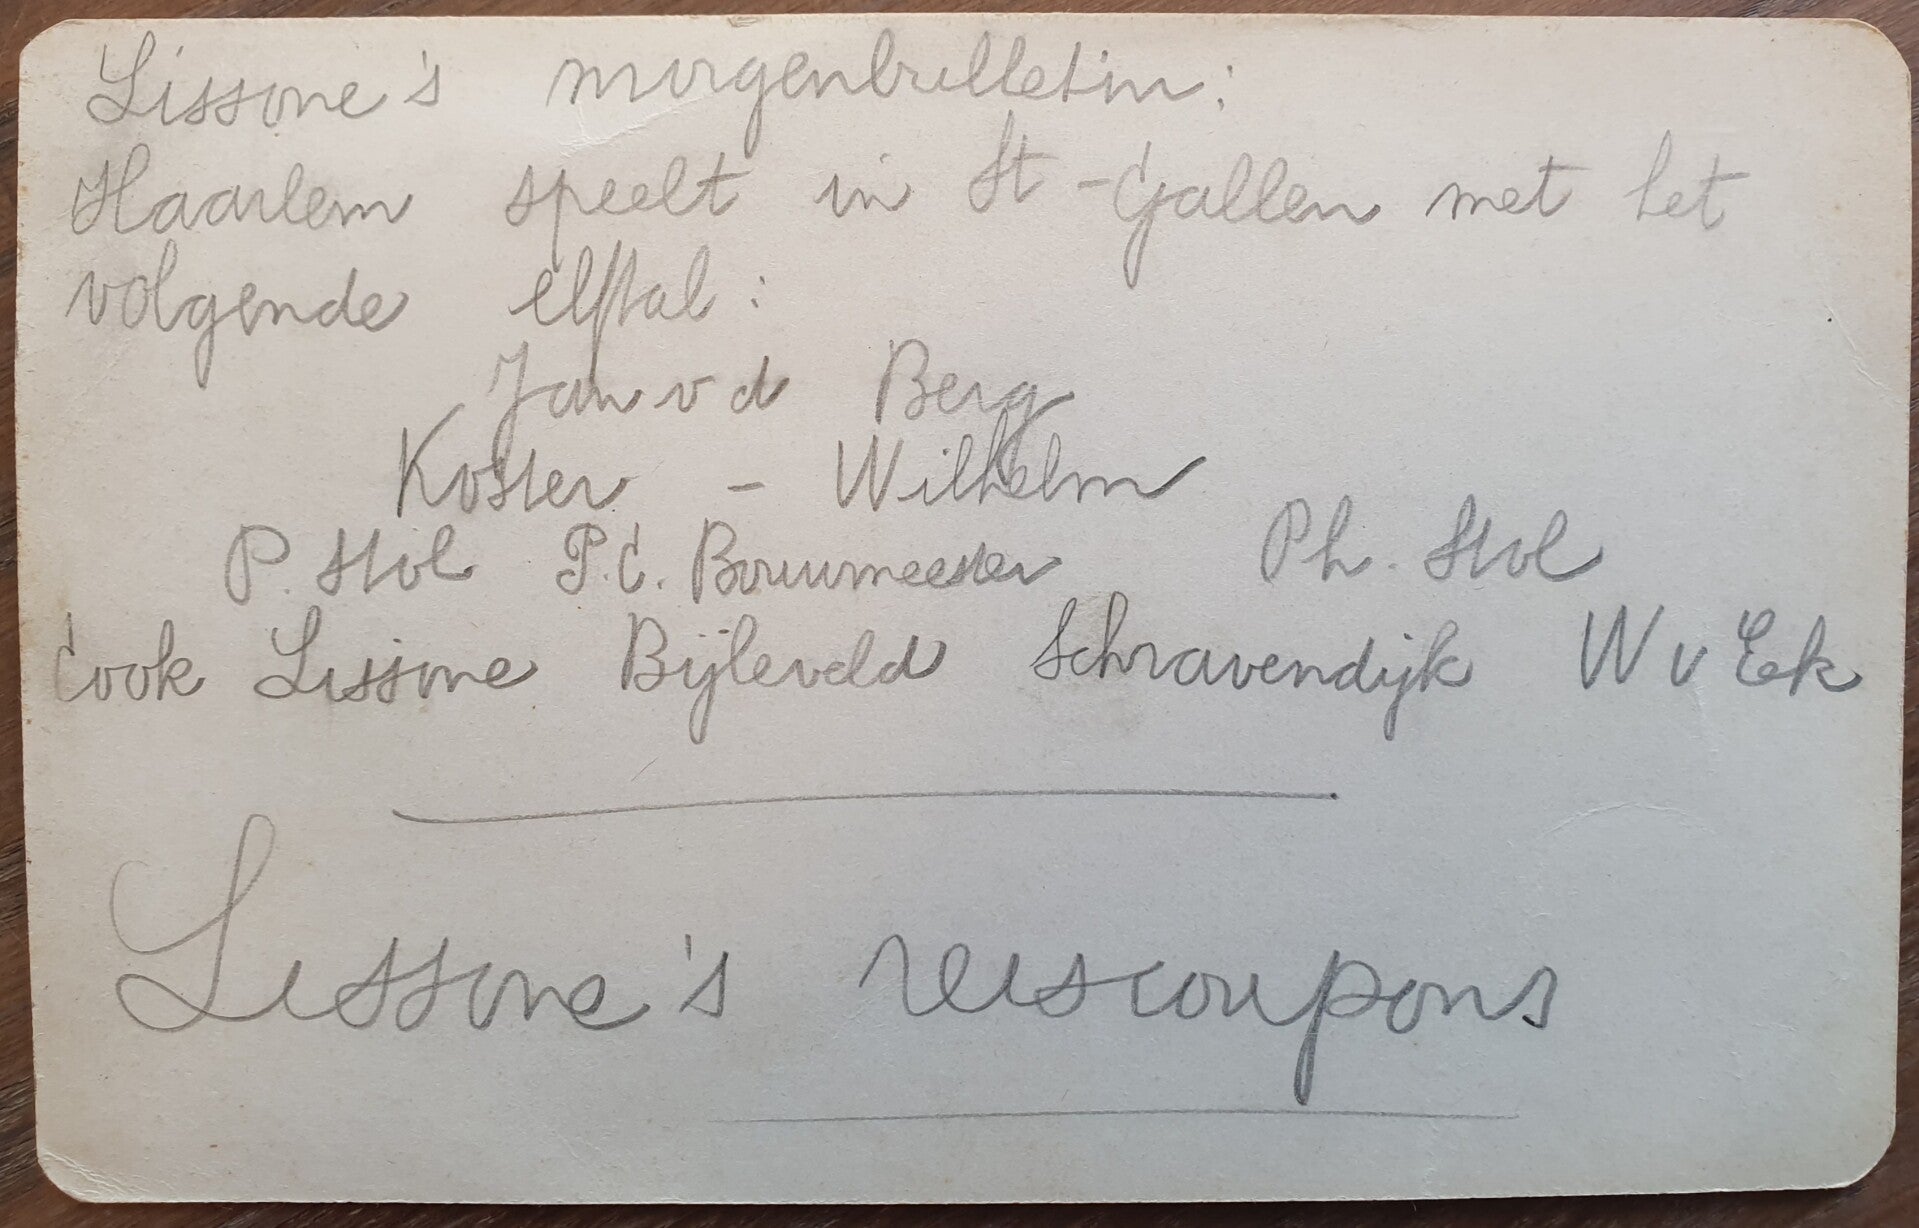 Lissone's morgenbulletin:
Haarlem speelt in St-Gallen met het
volgende elftal:
Jan v d Berg
Koster - Wilhelm
P. Stol P.C. Bouwmeester Ph. Stol
Cook Lissone Bijleveld Schravendijk W v Eek
Lissone's reiscoupons